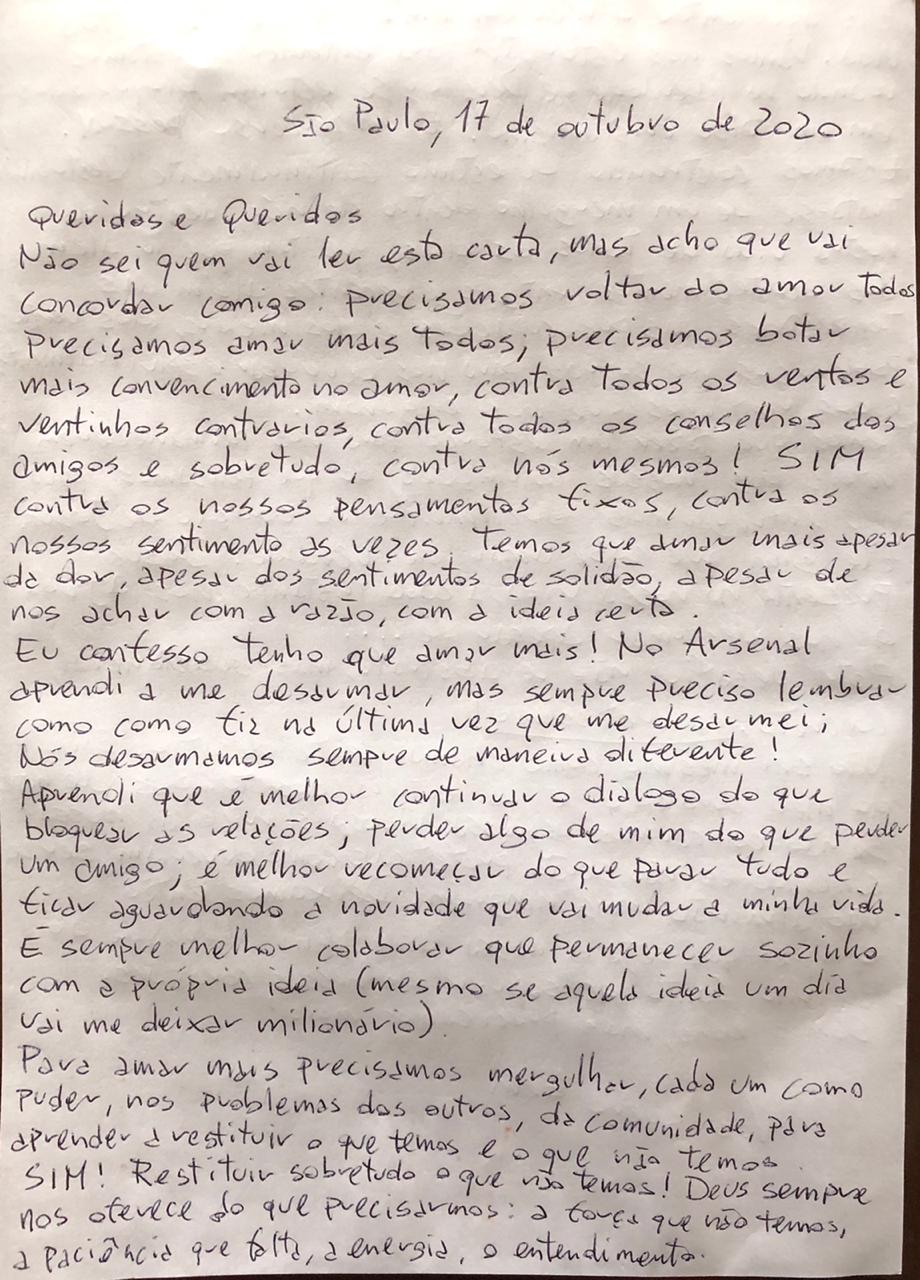 São Paulo, 17 de outubro de 2020
Queridas e Queridos
Não sei quem vai ler esta carta, mas acho que vai
concordar comigo: precisamos voltar ao amor todos
precisamos amar mais todos; precisamos botar
mais convencimento no amor, contra todos os ventos e
ventinhos contrarios, contra todos os conselhos dos
amigos e sobretudo, contra nós mesmos! SIM
contra os nossos pensamentos fixos, contra os
nossos sentimento as vezes. Temos que amar mais apesar
da dor, apesar dos sentimentos de solidão, apesar de
nos achar com a razão, com a ideia certa.
Eu confesso tenho que amar mais! No Arsenal
aprendi a me desarmar, mas sempre preciso lembrar
como como fiz na última vez que me desarmei;
Nós desarmamos sempre de maneira diferente!
Aprendi que é melhor continuar o dialogo do que
bloquear as relações; perder algo de mim do que perder
um amigo; é melhor recomeçar do que parar tudo e
ficar aguardando a novidade que vai mudar a minha vida.
É sempre melhor colaborar que permanecer sozinho
com a própria ideia (mesmo se aquela ideia um dia
vai me deixar milionário).
Para amar mais precisamos mergulhar, cada um como
puder, nos problemas dos outros, da comunidade, para
aprender a restituir o que temos e o que não temos.
SIM! Restituir sobretudo o que não temos! Deus sempre
nos oferece do que precisarmos: a força que não temos,
a paciência que falta, a energia, o entendimento.